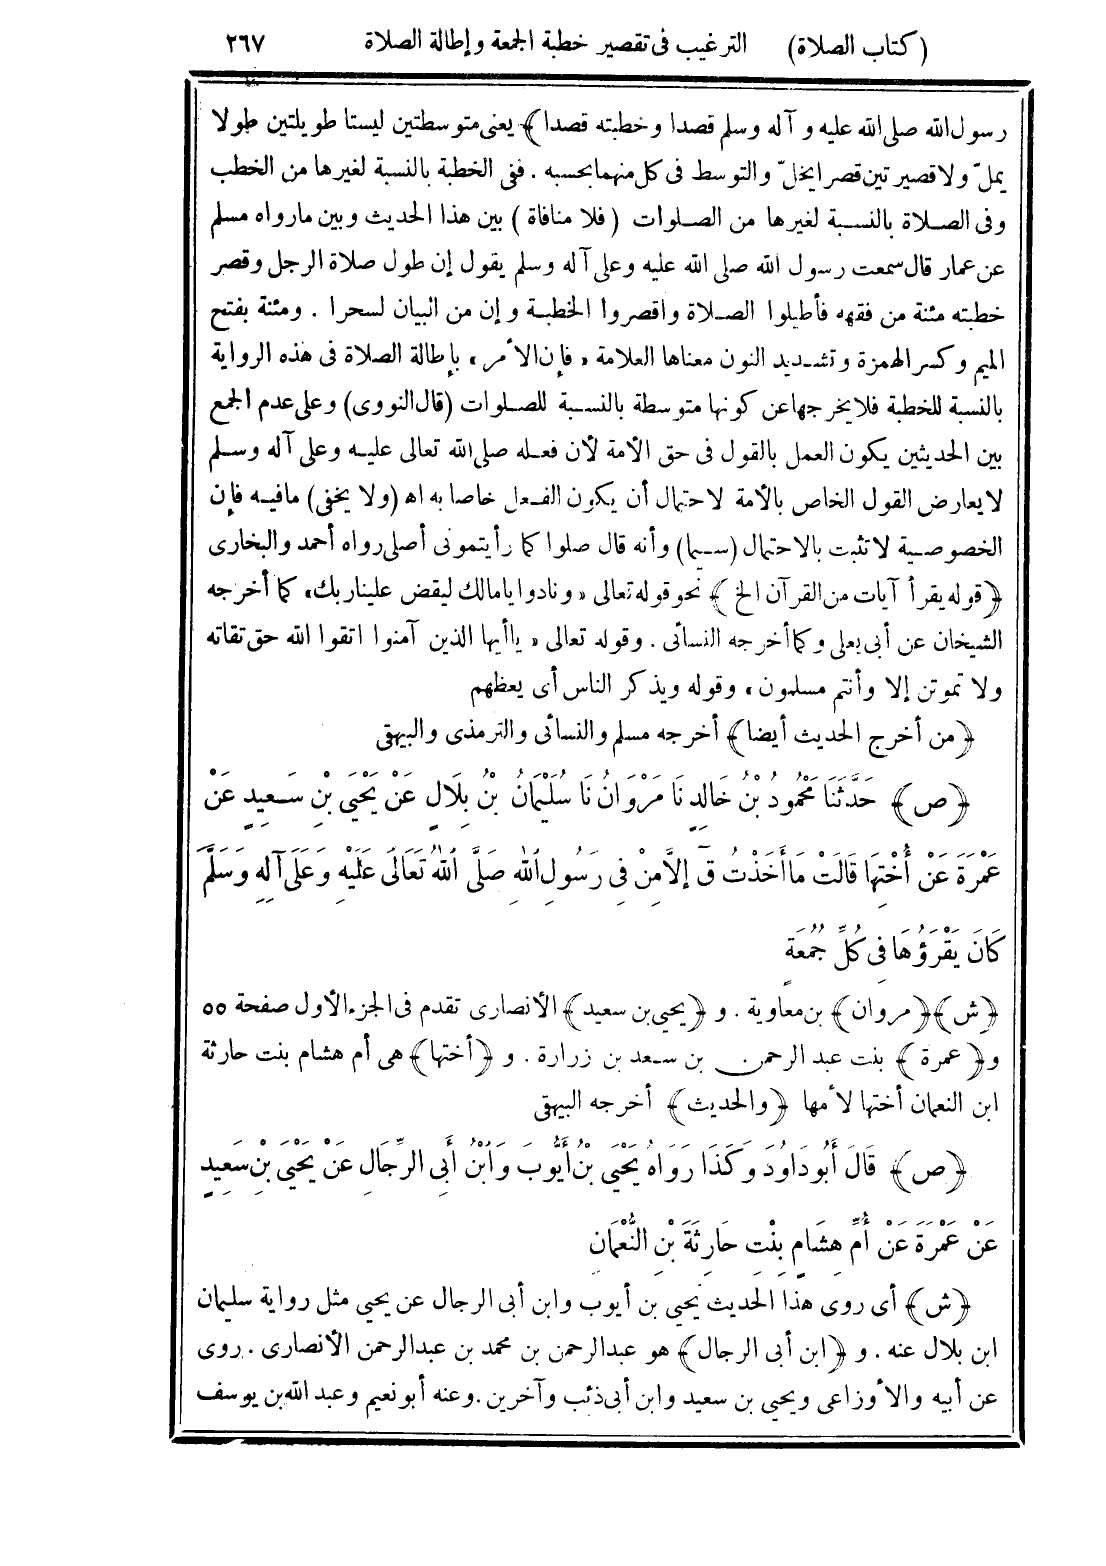 (كتاب الصلاة) الترغيب فى تقصير خطبة الجمعة وإطالة الصلاة ٢٦٧
رسول الله صلى الله عليه وآله وسلم قصدا وخطبته قصدا﴾ يعنى متوسطتين ليستا طويلتين طولا
يملّ ولا قصيرتين قصرا يخلّ والتوسط فى كل منهما بحسبه . ففى الخطبة بالنسبة لغيرها من الخطب
وفى الصلاة بالنسبة لغيرها من الصلوات (فلا منافاة) بين هذا الحديث وبين مارواه مسلم
عن عمار قال سمعت رسول الله صلى الله عليه وعلى آله وسلم يقول إن طول صلاة الرجل وقصر
خطبته مئنة من فقهه فأطيلوا الصلاة واقصروا الخطبة وإن من البيان لسحرا . ومئنة بفتح
الميم وكسر الهمزة وتشديد النون معناها العلامة «فإن الأمر» بإطالة الصلاة فى هذه الرواية
بالنسبة للخطبة فلا يخرجها عن كونها متوسطة بالنسبة للصلوات (قال النووى) وعلى عدم الجمع
بين الحديثين يكون العمل بالقول فى حق الأمة لأن فعله صلى الله تعالى عليه وعلى آله وسلم
لا يعارض القول الخاص بالأمة لاحتمال أن يكون الفعل خاصا به اه (ولا يخفى) مافيه فإن
الخصوصية لا تثبت بالاحتمال (سيما) وأنه قال صلوا كما رأيتمونى أصلى رواه أحمد والبخارى
﴿قوله يقرأ آيات من القرآن الخ﴾ نحو قوله تعالى «ونادوا يامالك ليقض علينا ربك» كما أخرجه
الشيخان عن أبى يعلى وكما أخرجه النسائى . وقوله تعالى «ياأيها الذين آمنوا اتقوا الله حق تقاته
ولا تموتن إلا وأنتم مسلمون» وقوله ويذكر الناس أى يعظهم
﴿من أخرج الحديث أيضا﴾ أخرجه مسلم والنسائى والترمذى والبيهقى
﴿ص﴾ حَدَّثَنَا مَحْمُودُ بْنُ خَالِدٍ نَا مَرْوَانُ نَا سُلَيْمَانُ بْنُ بِلَالٍ عَنْ يَحْيَى بْنِ سَعِيدٍ عَنْ
عَمْرَةَ عَنْ أُخْتِهَا قَالَتْ مَا أَخَذْتُ قَ إِلَّا مِنْ فِى رَسُولِ اللهِ صَلَّى اللهُ تَعَالَى عَلَيْهِ وَعَلَى آلِهِ وَسَلَّمَ
كَانَ يَقْرَؤُهَا فِى كُلِّ جُمُعَةٍ
﴿ش﴾ ﴿مروان﴾ بن معاوية . و ﴿يحيى بن سعيد﴾ الأنصارى تقدم فى الجزء الأول صفحة ٥٥
و﴿عمرة﴾ بنت عبد الرحمن بن سعد بن زرارة . و ﴿أختها﴾ هى أم هشام بنت حارثة
ابن النعمان أختها لأمها ﴿والحديث﴾ أخرجه البيهقى
﴿ص﴾ قَالَ أَبُو دَاوُدَ وَكَذَا رَوَاهُ يَحْيَى بْنُ أَيُّوبَ وَابْنُ أَبِى الرِّجَالِ عَنْ يَحْيَى بْنِ سَعِيدٍ
عَنْ عَمْرَةَ عَنْ أُمِّ هِشَامٍ بِنْتِ حَارِثَةَ بْنِ النُّعْمَانِ
﴿ش﴾ أى روى هذا الحديث يحيى بن أيوب وابن أبى الرجال عن يحيى مثل رواية سليمان
ابن بلال عنه . و ﴿ابن أبى الرجال﴾ هو عبدالرحمن بن محمد بن عبدالرحمن الأنصارى . روى
عن أبيه والأوزاعى ويحيى بن سعيد وابن أبى ذئب وآخرين . وعنه أبو نعيم وعبد الله بن يوسف